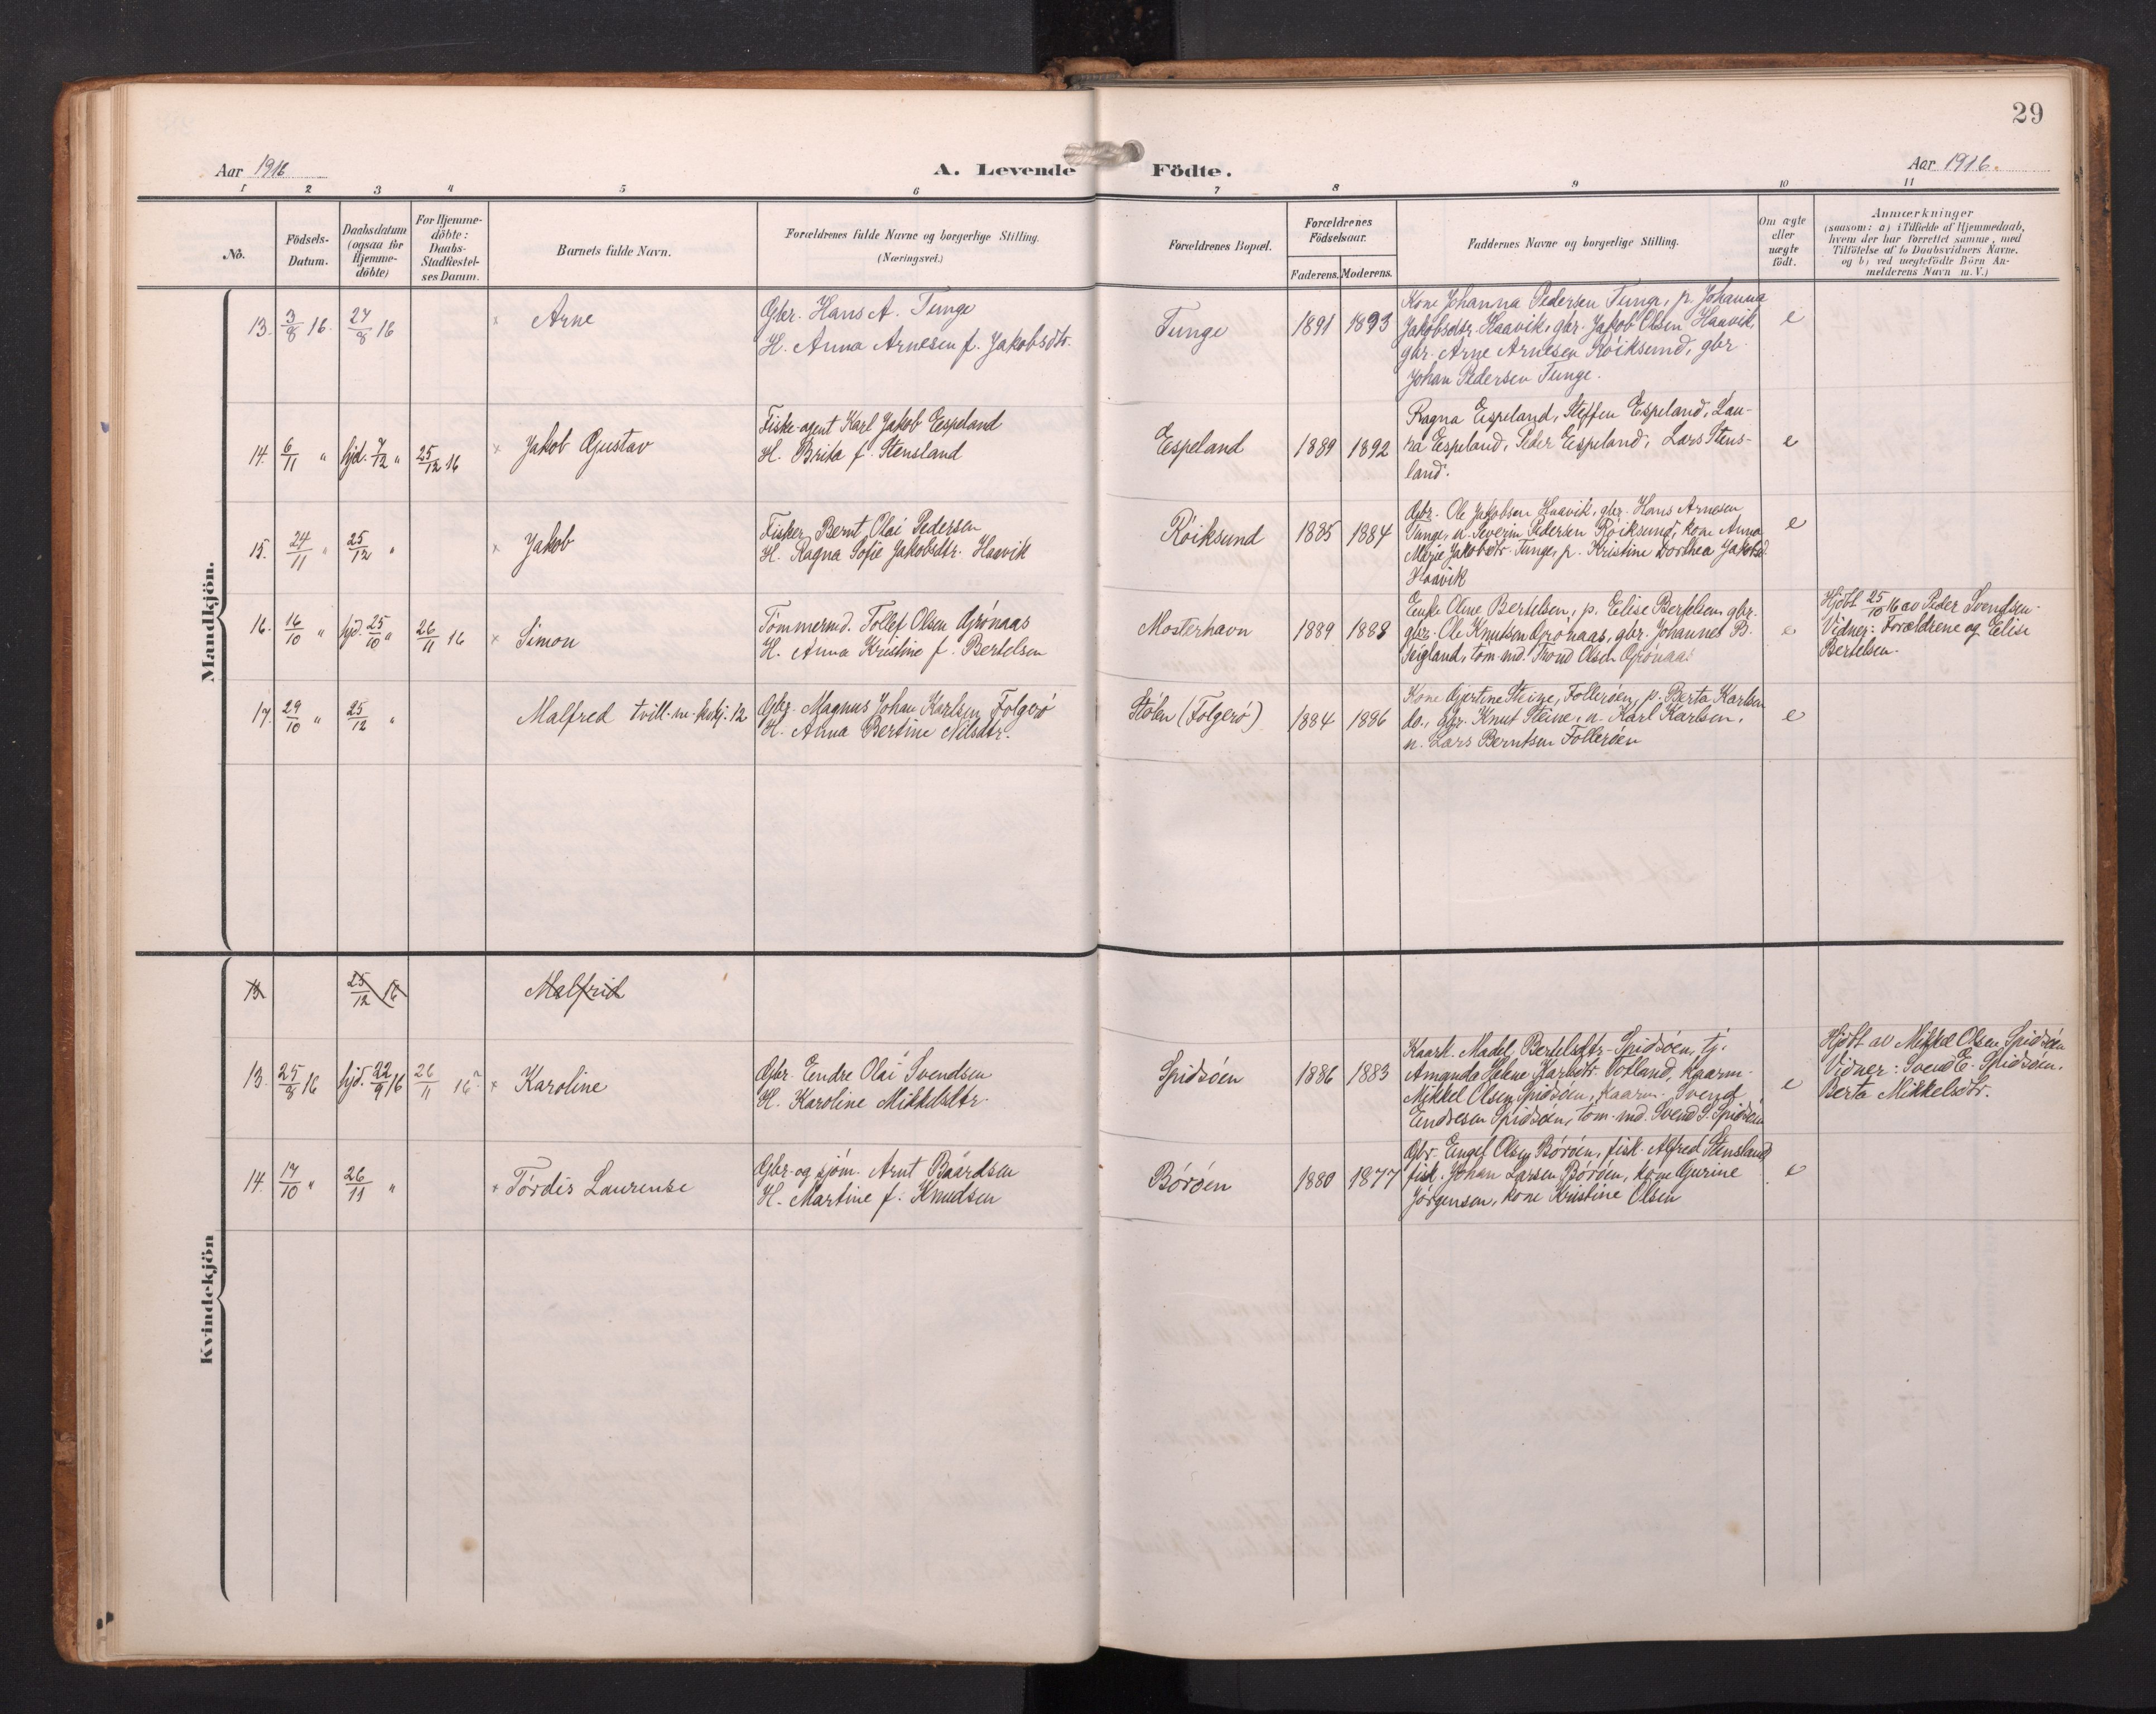 29
Aar 1916
A. Levende Födte.
Aar 1916.
1 2 3 4 5 6 7 8 9 10 11
No.
Födsels-Datum.
Daabsdatum (ogsaa for Hjemme-döbte)
For Hjemme-döbte: Daabs-Stadfæstel-ses Datum.
Barnets fulde Navn.
Forældrenes fulde Navne og borgerlige Stilling. (Næringsvei.)
Forældrenes Bopæl.
Forældrenes Födselsaar.
Faderens. Moderens.
Faddernes Navne og borgerlige Stilling.
Om ægte eller uægte födt.
Anmærkninger
(saasom: a) i Tilfælde af Hjemmedaab,
hvem der har forrettet samme, med
Tilföielse af to Daabsvidners Navne.
og b) ved uægtefödte Börn An-
melderens Navn m. V.)
Mandkjön.
13. 3/8 16. 27/8 16 × Arne
Gbr. Hans A. Tunge
H. Anna Arnesen f. Jakobsdtr.
Tunge 1891 1893
Kone Johanna Pedersen Tunge, p. Johanna
Jakobsdtr. Haavik, gbr. Jakob Olsen Haavik,
gbr. Arne Arnesen Röiksund, gbr.
Johan Pedersen Tunge.
e
14. 6/11 " hjd. 7/12 " 25/12 16 × Jakob Gustav
Fiske-agent Karl Jakob Eespeland
H. Brita f. Stensland
Eespeland 1889 1892
Ragna Espeland, Steffen Espeland, Lau-
ra Eespeland, Peder Eespeland, Lars Stens-
land.
e
15. 24/11 " 25/12 " × Jakob
Fisker Bernt Olai Pedersen
H. Ragna Sofie Jakobsdtr. Haavik
Röiksund 1885 1884
Gbr. Ole Jakobsen Haavik, gbr. Hans Arnesen
Tunge, u. Severin Pedersen Röiksund, kone Anna
Marie Jakobsdtr. Tunge, p. Kristine Dorthea Jakobsd.
Haavik
e
16. 16/10 " hjd. 25/10 " 26/11 16 × Simon
Tömmermd. Tollef Olsen Grönaas
H. Anna Kristine f. Bertelsen
Mosterhavn 1889 1888
Enke Oline Bertelsen, p. Elise Bertelsen, gbr.
gbr. Ole Knutsen Grönaas, gbr. Johannes B.
Seigland, töm.md. Trond Olsen Grönaas
e
Hjdbt 25/10 16 av Peder Svendsen.
Vidner: Forældrene og Elise
Bertelsen.
17. 29/10 " 25/12 " Malfred tvill. 12
Gbr. Magnus Johan Karlsen Folgerö
H. Anna Bertine Nilsdtr.
Stölen (Folgerö) 1884 1886
Kone Gjertine Steine, Folleröen, p. Berta Karlsen
do., gbr. Knut Steine, u. Karl Karlsen,
u. Lars Berntsen Folleröen
e
Kvindekjön
13 25/12 16 Malfrid
13. 25/8 16 hjd. 22/9 16 26/11 16 × Karoline
Gbr. Endre Olai Svendsen
H. Karoline Mikkelsdtr.
Spidsöen 1886 1883
Kaark. Madel Bertelsdtr. Spidsöen, tj.
Amanda Helene Karlsdtr. Totland, kaarm.
Mikkel Olsen Spidsöen, kaarm. Svend
Endresen Spidsöen, töm.md. Svend S. Spidsöen
e
Hjdbt av Mikkel Olsen Spidsöen
Vidner: Svend E. Spidsöen,
Berta Mikkelsdtr.
14. 17/10 " 26/11 " × Tordis Laurense
Gbr. og sjöm. Arnt Baardsen
H. Martine f. Knudsen
Böröen 1880 1877
Gbr. Engel Olsen Böröen, fisk. Alfred Stensland
fisk. Johan Larsen Böröen, kone Gurine
Jörgensen, kone Kristine Olsen
e